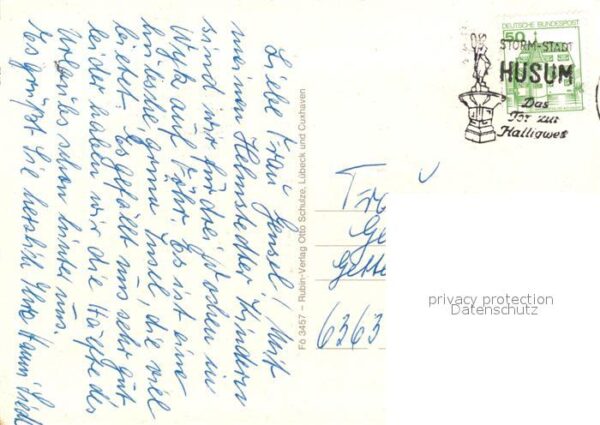 Liebe Frau Gensel! Mit
meinen Helmstedter Kindern
sind wir für drei Wochen in
Wyk auf Föhr. Es ist eine
hübsche, grüne Insel, die viel
bietet. Es gefällt uns sehr gut
leider haben wir die Hälfte des
Urlaubes schon hinter uns.
Es grüßt Sie herzlich Ihre Hanni
Fö 3457 – Rubin-Verlag Otto Schulze, Lübeck und Cuxhaven
DEUTSCHE BUNDESPOST
50
STORM-STADT
HUSUM
Das
Tor zur
Halligwelt
Fra
Ge
Gette
6363
privacy protection
Datenschutz